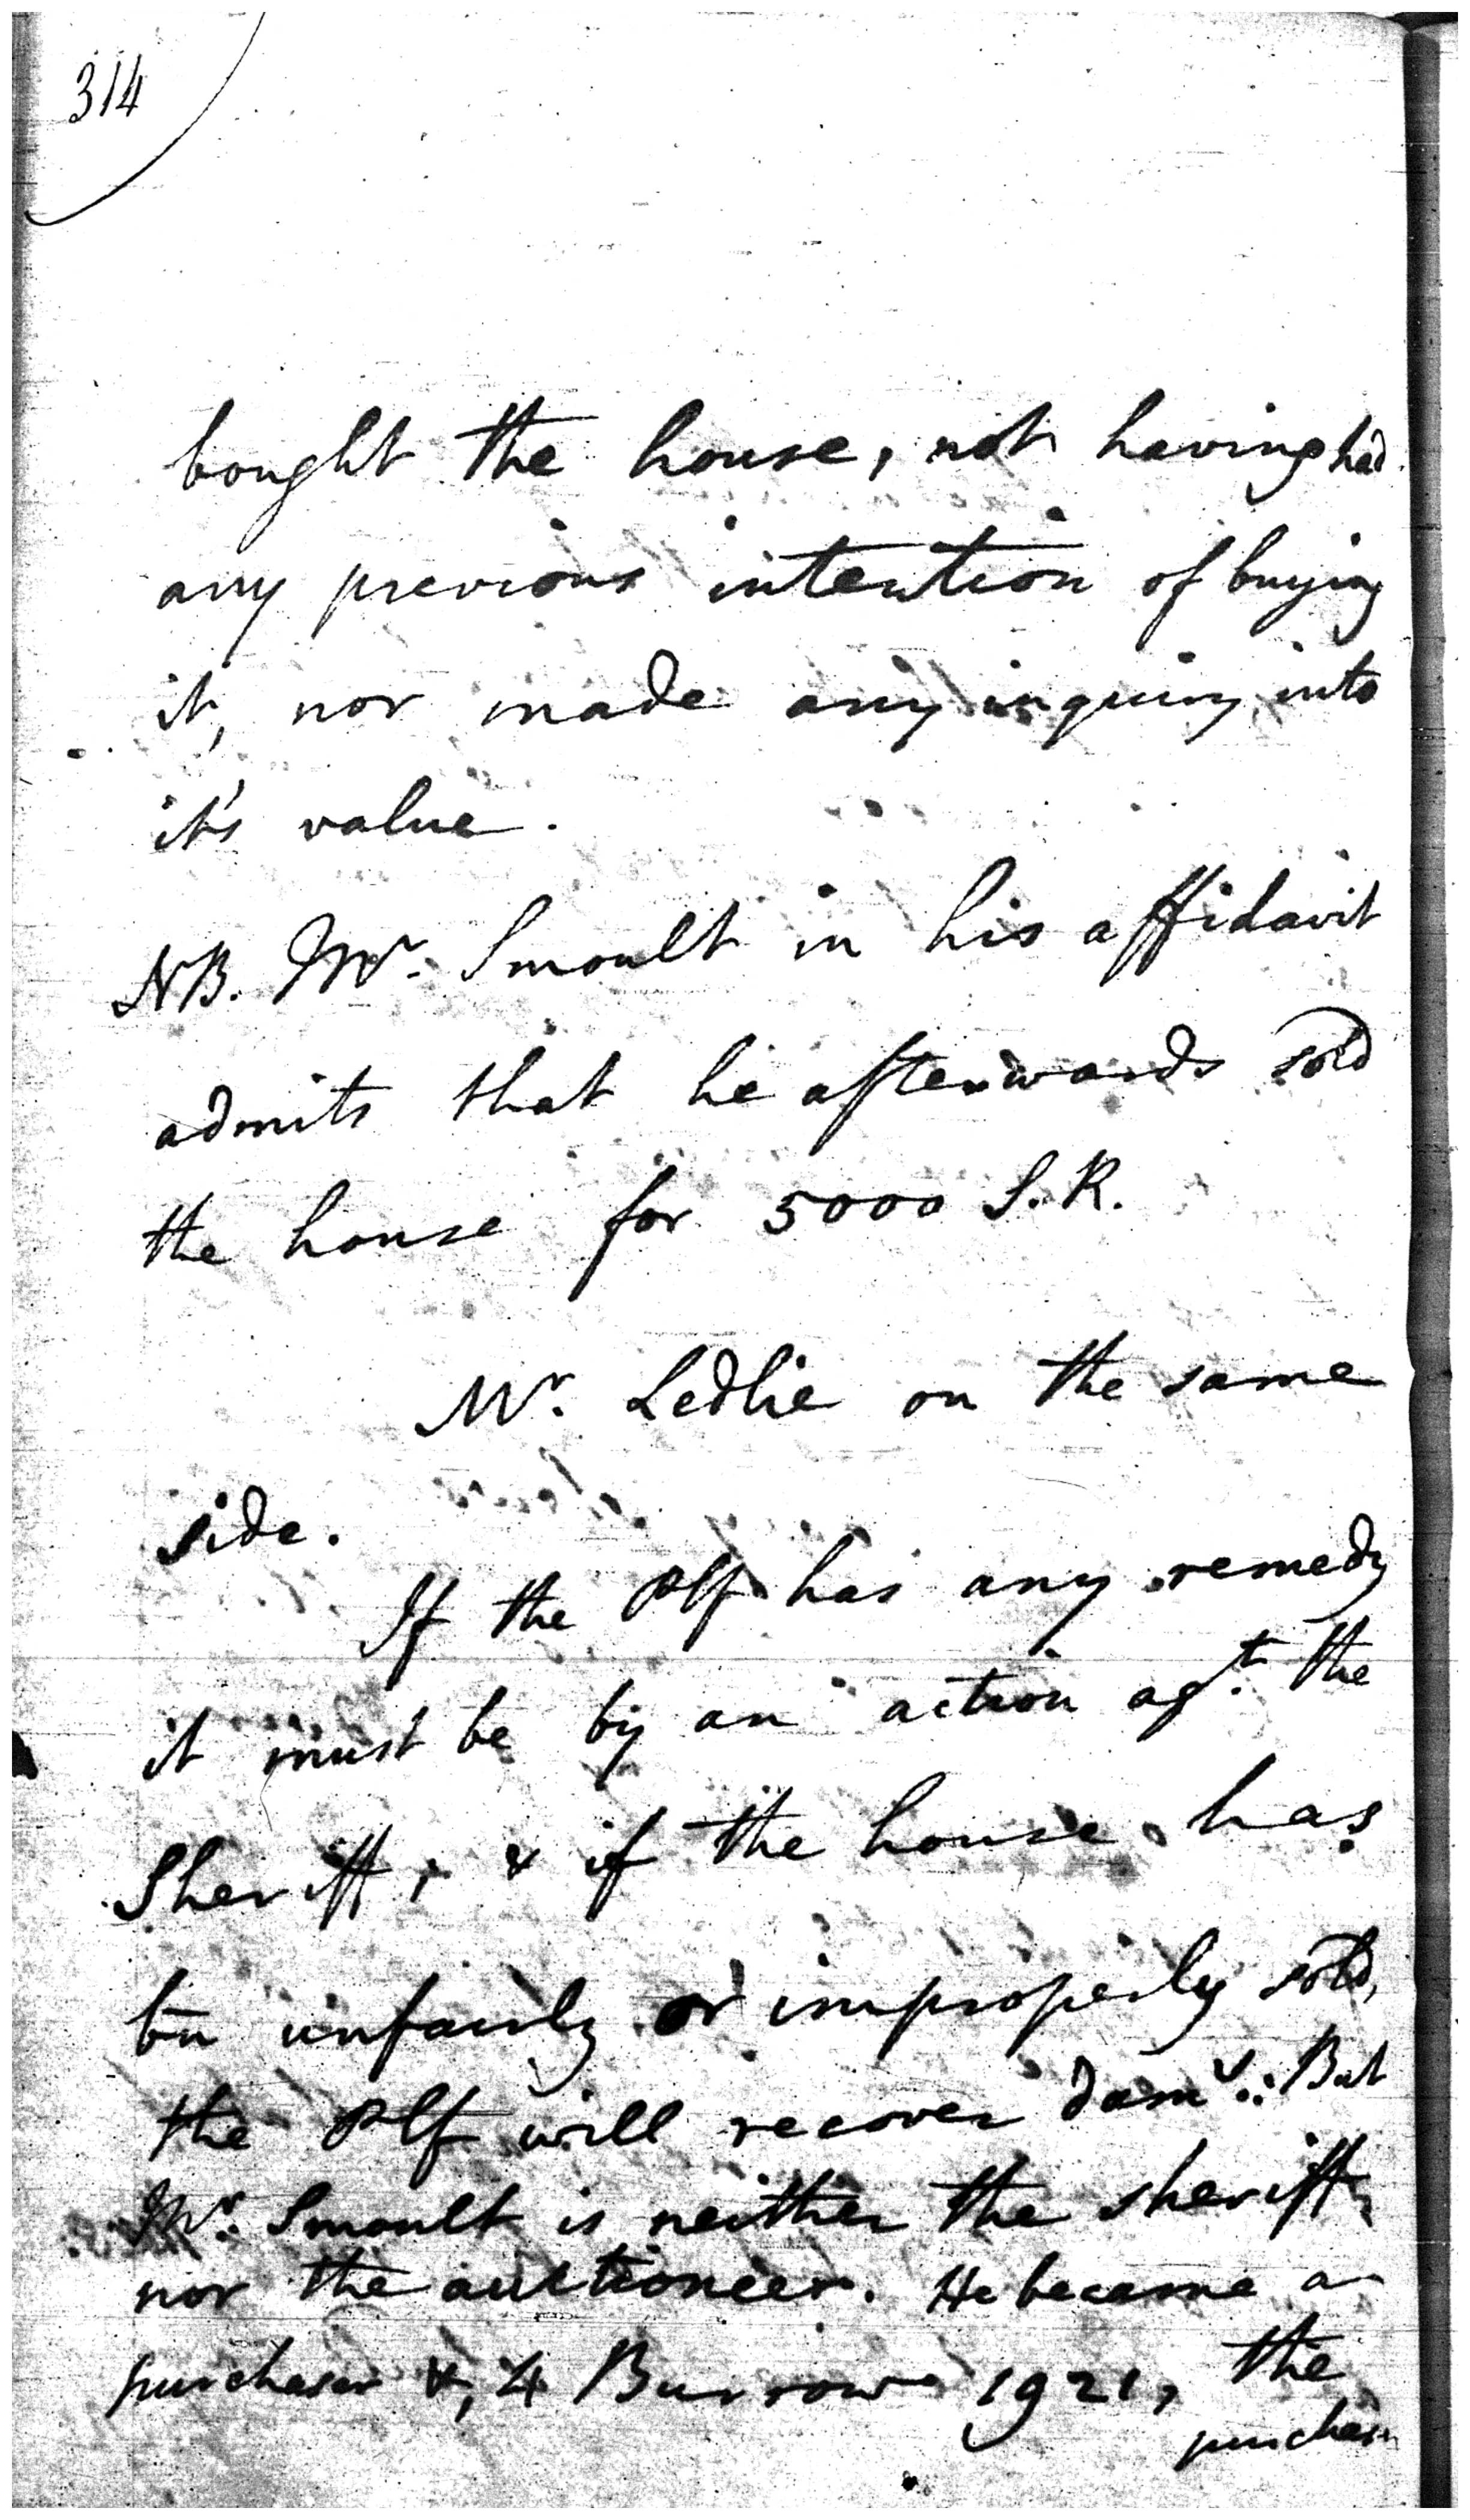 314
bought the house, not having had
any previous intention of buying
it, nor made any inquiry into
it's value.
NB. Mr. Smoult in his affidavit
admits that he afterwards sold
the house for 5000 S.R.
Mr. Ledlie on the same
side.
If the Plf has any remedy
it must be by an action agt. the
Sheriff, & if the house has
bn unfairly or improperly sold,
the Plf will recover dams.. But
Mr. Smoult is neither the sheriff
nor the auctioneer. He became a
purchaser &, 4 Burrows 1921, the
purchasr